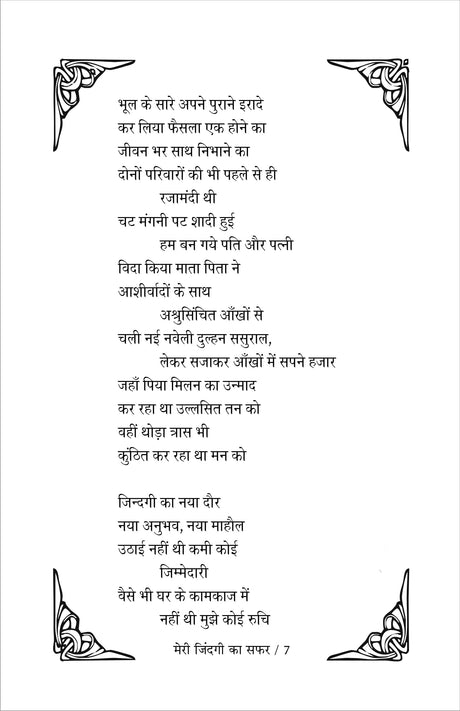 भूल के सारे अपने पुराने इरादे
कर लिया फैसला एक होने का
जीवन भर साथ निभाने का
दोनों परिवारों की भी पहले से ही
रजामंदी थी
चट मंगनी पट शादी हुई
हम बन गये पति और पत्नी
विदा किया माता पिता ने
आशीर्वादों के साथ
अश्रुसिंचित आँखों से
चली नई नवेली दुल्हन ससुराल,
लेकर सजाकर आँखों में सपने हजार
जहाँ पिया मिलन का उन्माद
कर रहा था उल्लसित तन को
वहीं थोड़ा त्रास भी
कुंठित कर रहा था मन को
जिन्दगी का नया दौर
नया अनुभव, नया माहौल
उठाई नहीं थी कमी कोई
जिम्मेदारी
वैसे भी घर के कामकाज में
नहीं थी मुझे कोई रुचि
मेरी जिंदगी का सफर / 7